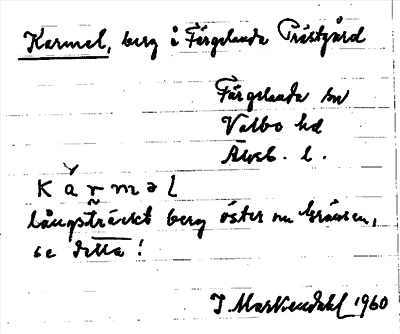 Karmel, berg å Färgelanda Prästgård
Färgelanda sn
Valbo hd
Älvsb. l.
k ǎ r̰ m ə l
långsträckt berg öster om Gränsen,
se detta!
1960